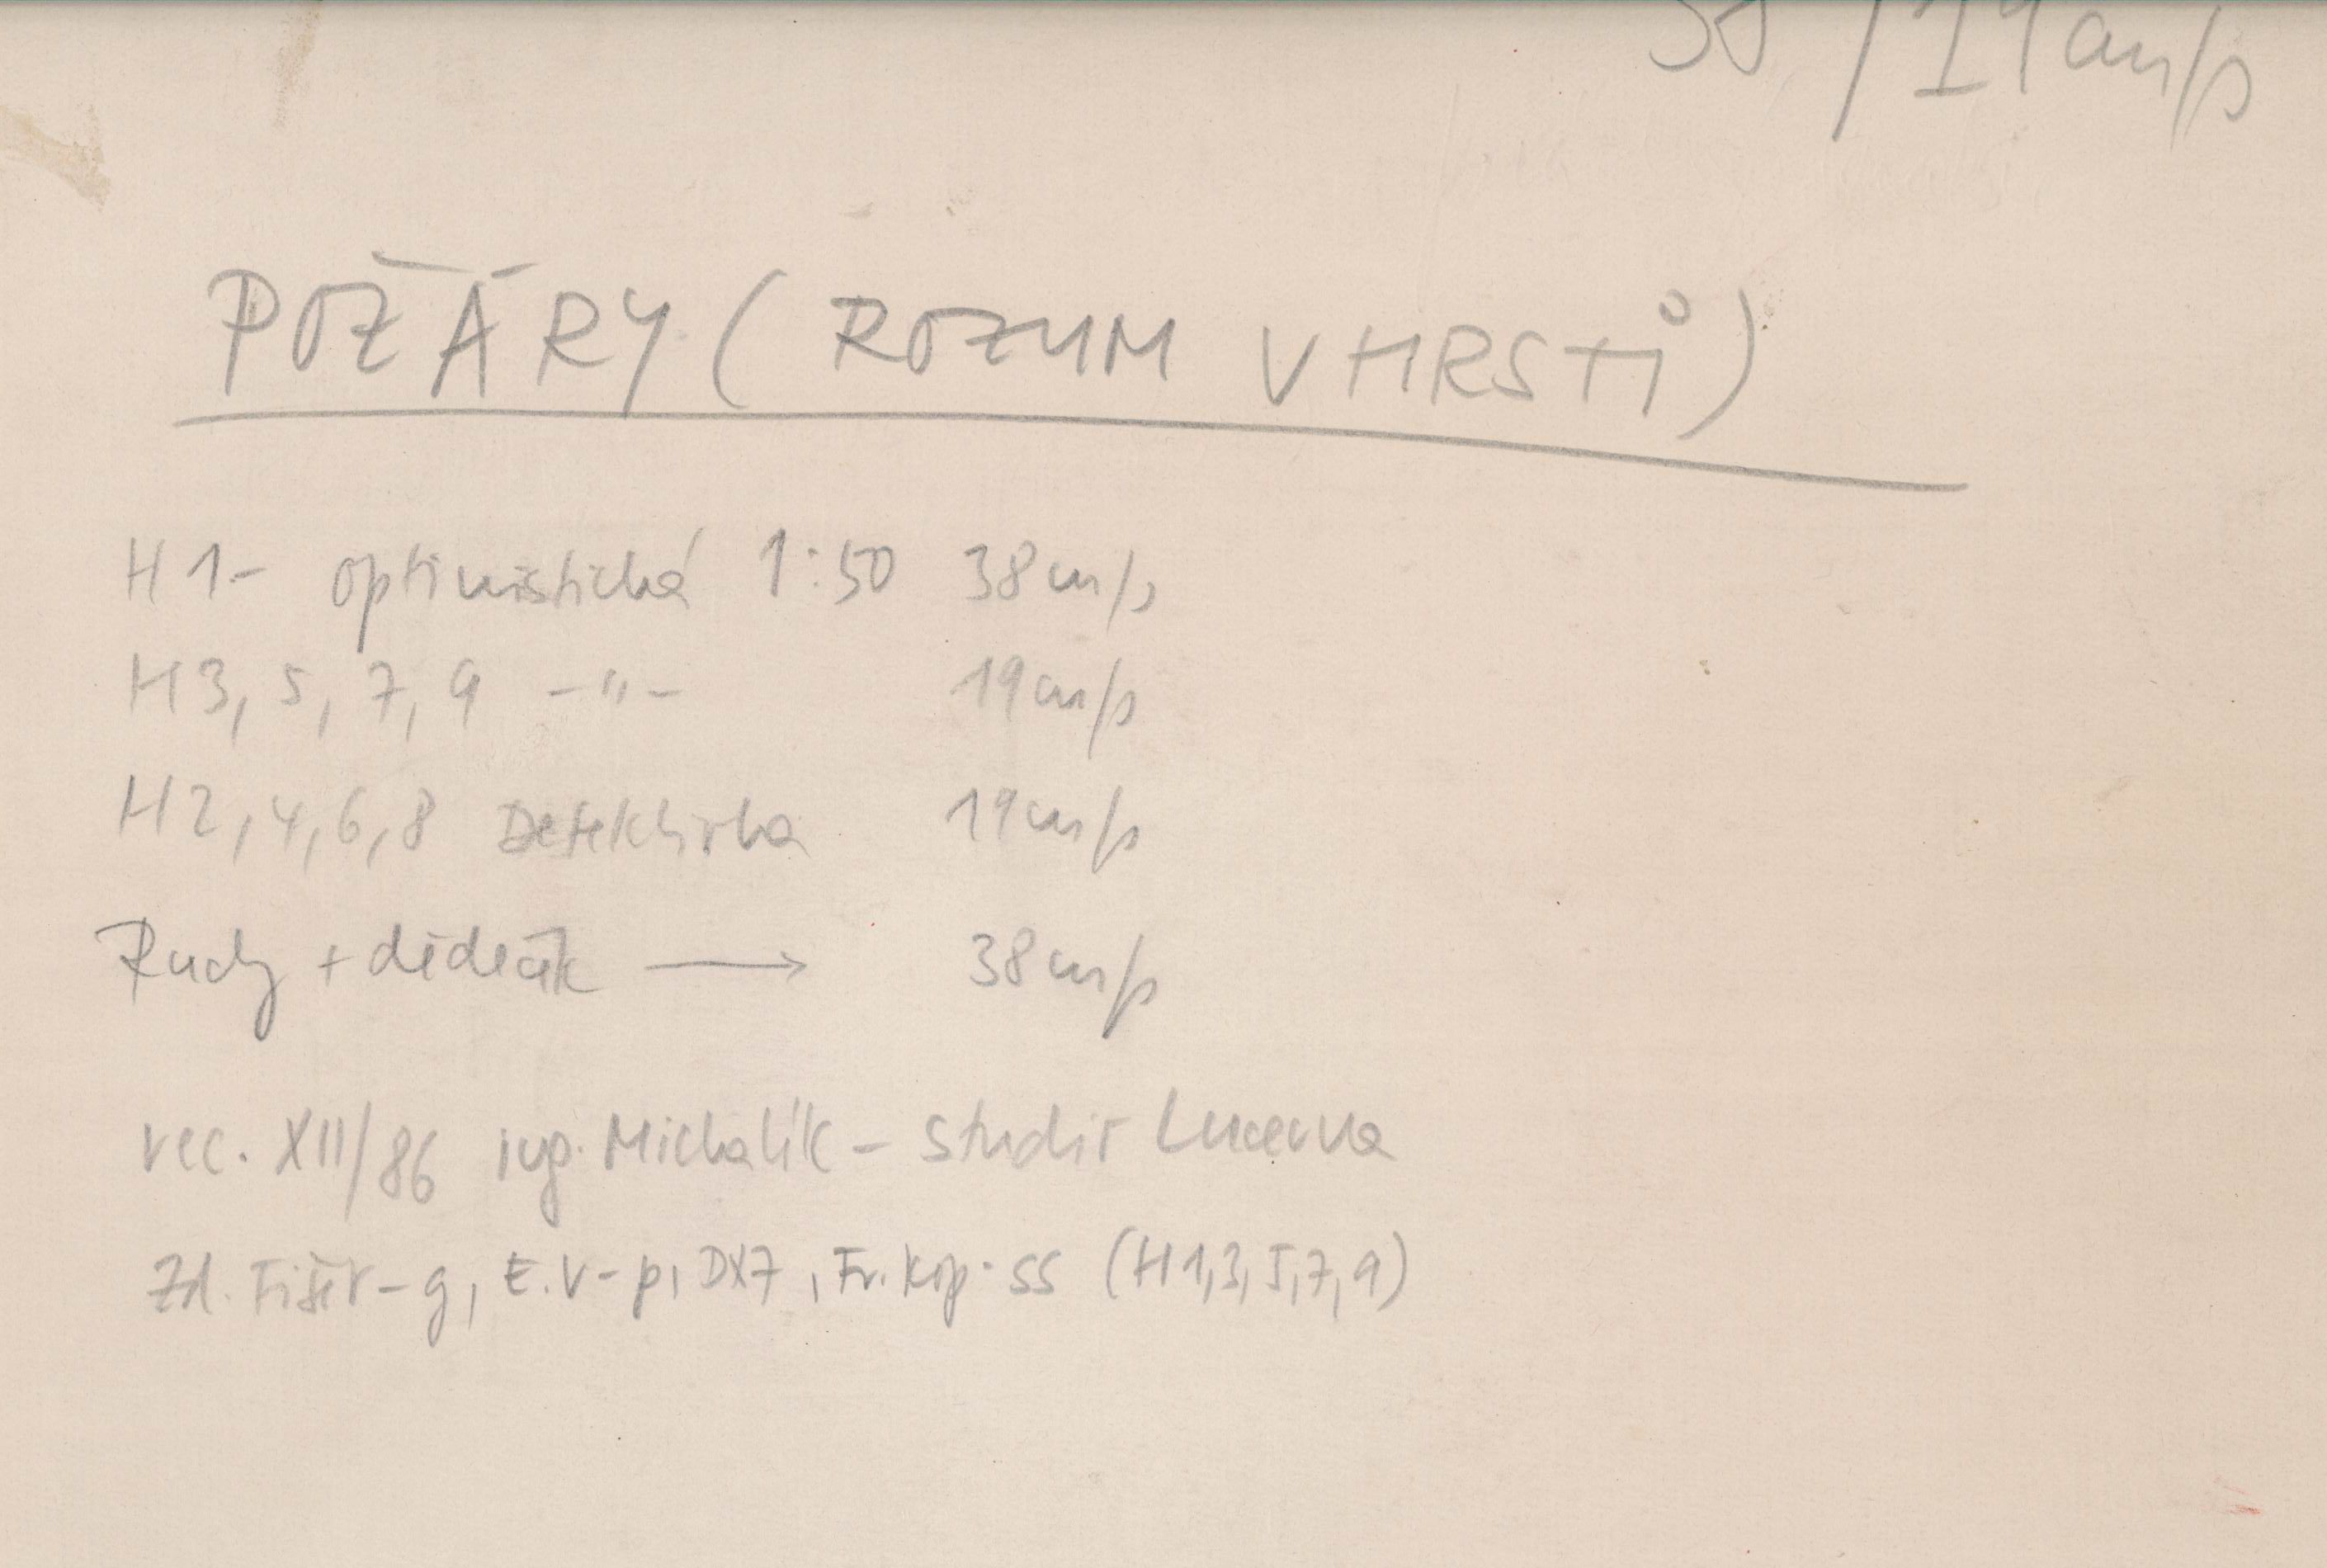 38/19 cm/s
POŽÁRY (ROZUM V HRSTI)
H1- optimistická 1:50 38cm/s
H3, 5, 7, 9 -"- 19cm/s
H2, 4, 6, 8 Detektivka 19cm/s
Rudy + dědeček → 38cm/s
rec. XII/86 ing. Michalík - studio Lucerna
Zd. Fišer - g, E.V - p, DX7, Fr. Kop - ss (H1,3,5,7,9)